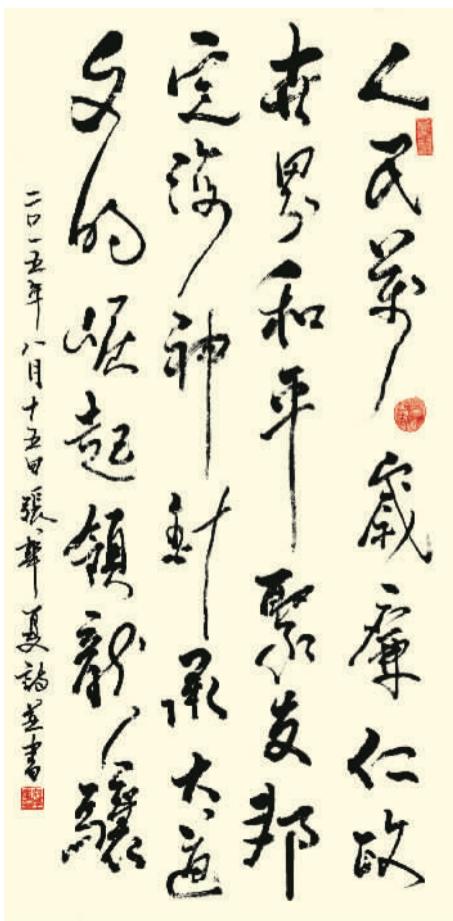 人民萬歲廉仁政
世界和平聚友邦
定海神針承大道
文明崛起領龍驤
二〇一五年八月十五日張華夏詩並書